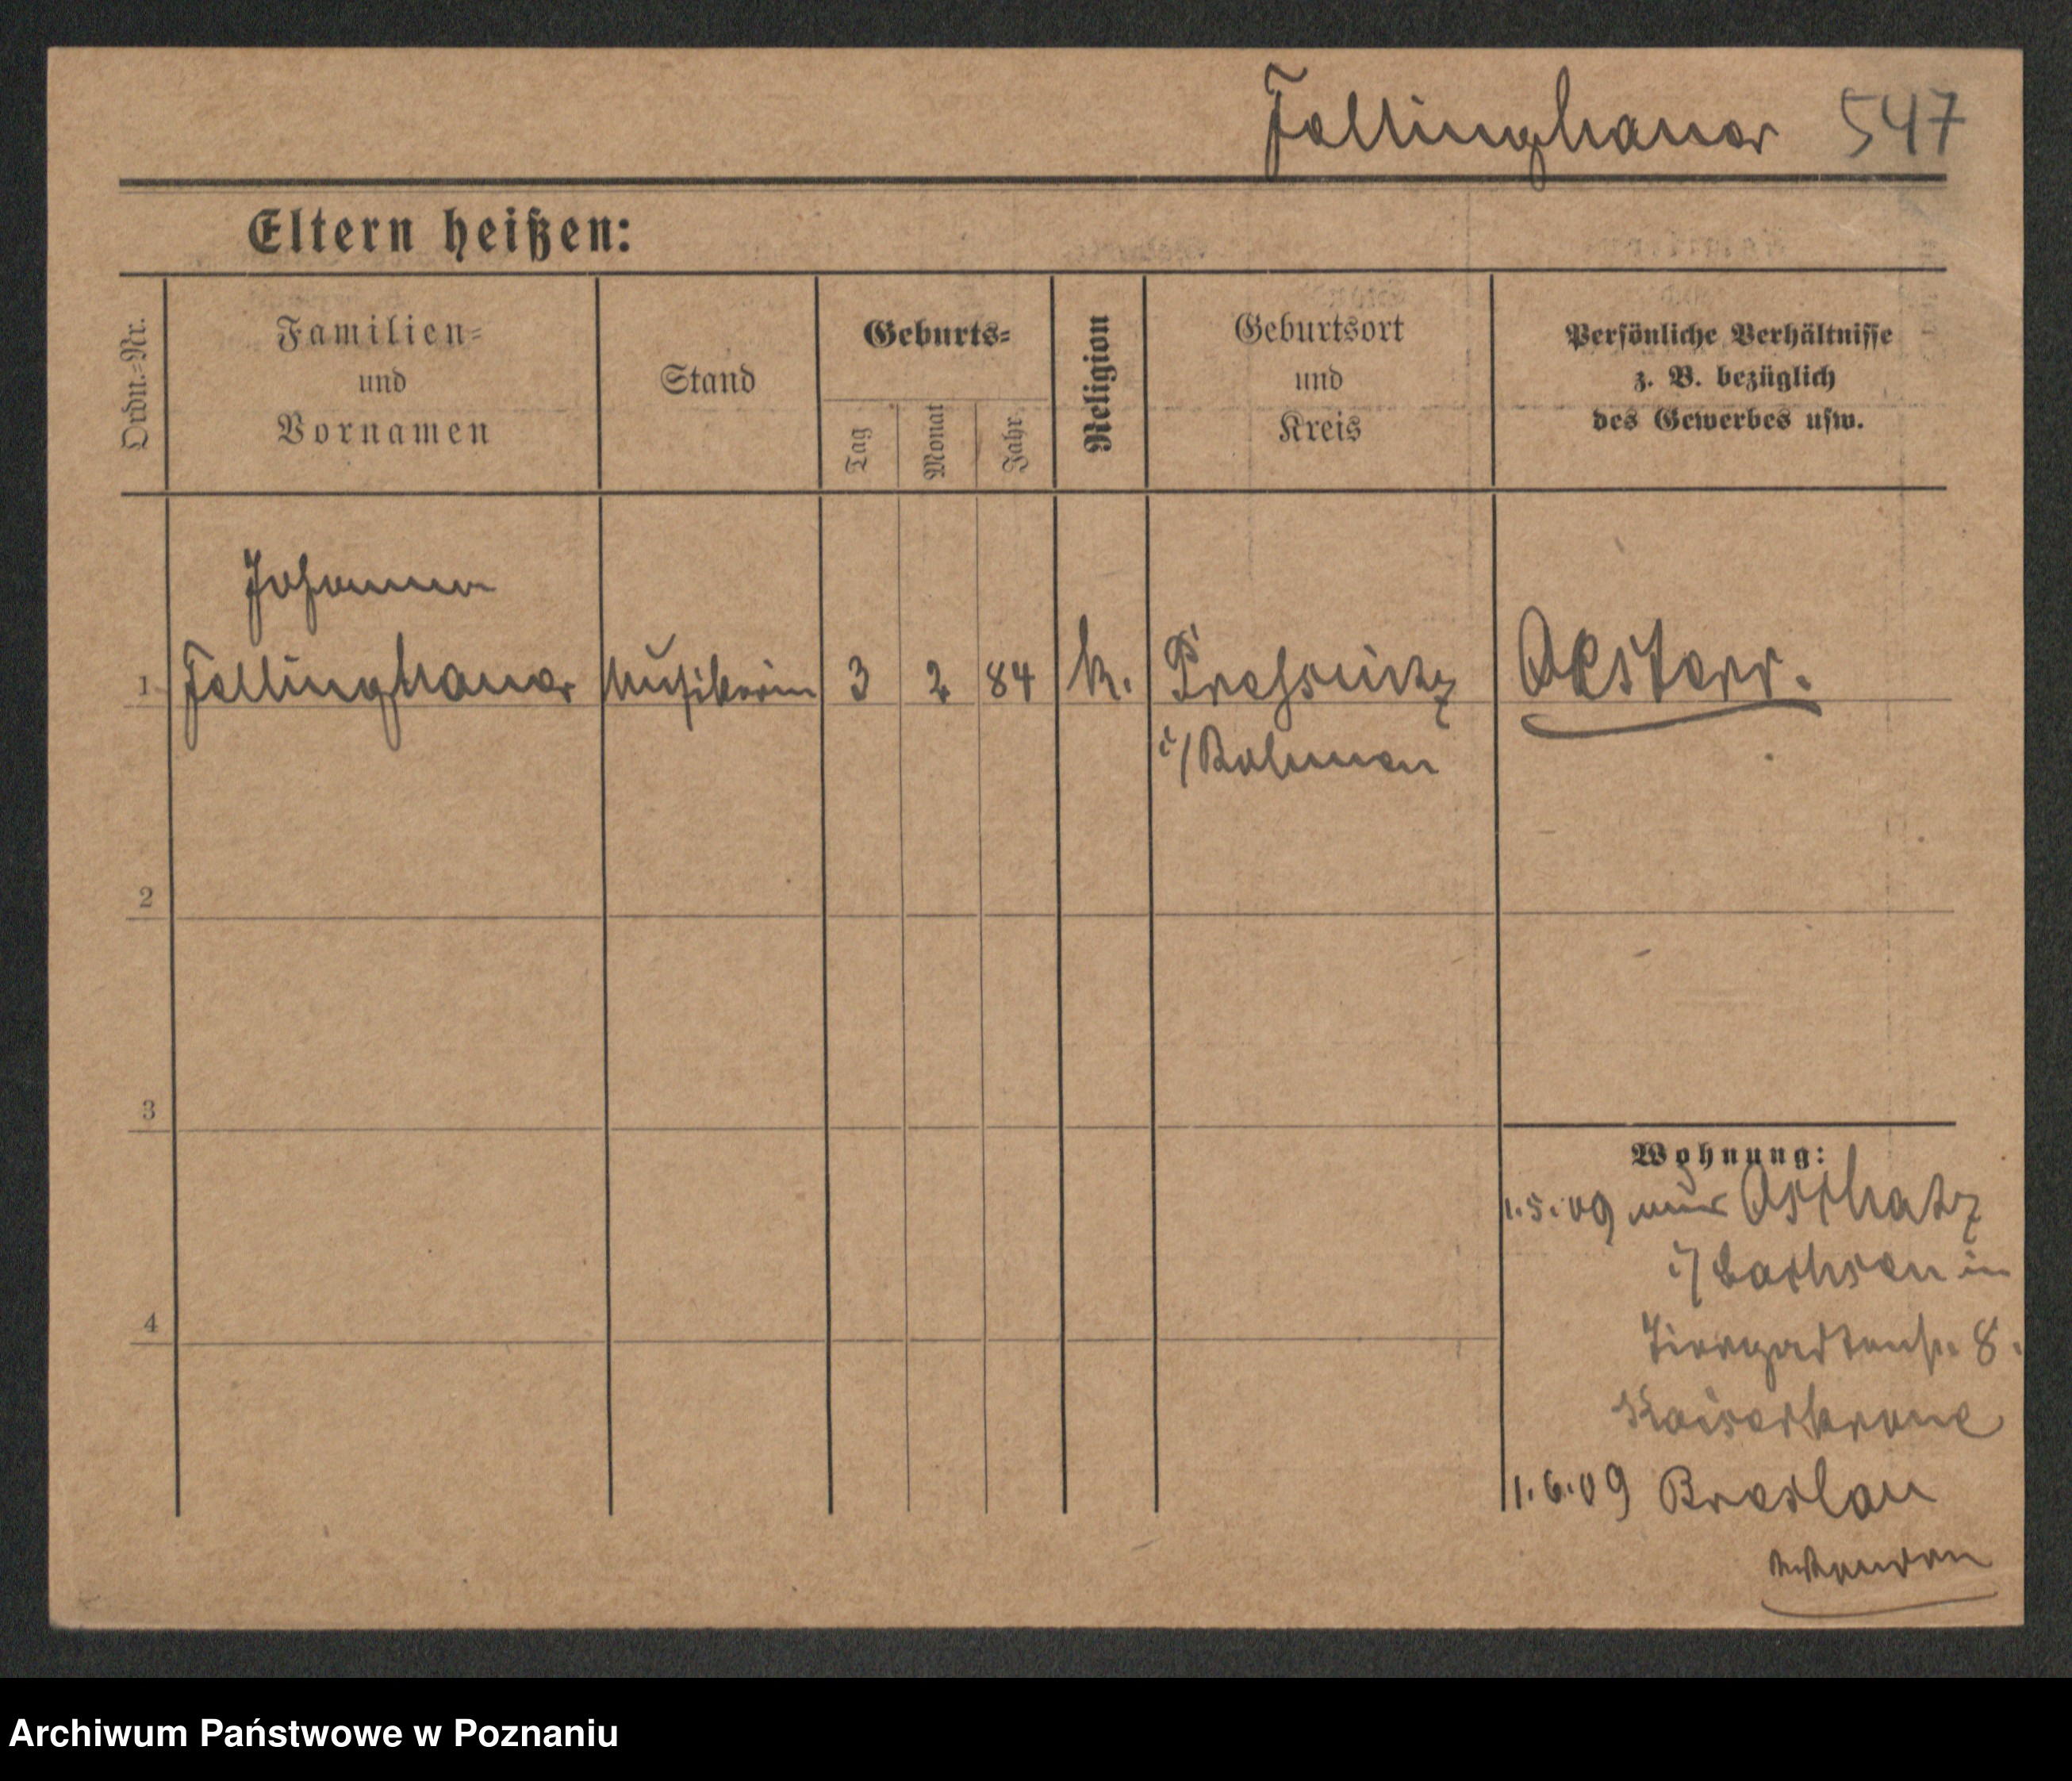 Fellinghauer 547
Eltern heißen:
Ordn.=Nr.
Familien=
und
Vornamen
Stand
Geburts=
Tag
Monat
Jahr
Religion
Geburtsort
und
Kreis
Persönliche Verhältnisse
z. B. bezüglich
des Gewerbes usw.
Johanna
1 Fellinghauer Musikerin 3 2 84 k. Pressnitz Oesterr.
i/Böhmen
2
3
Wohnung:
1.5.09 aus Oschatz
i/Sachsen in
4
Tiergartenstr. 8.
Kaiserkrone
1.6.09 Breslau
Archiwum Państwowe w Poznaniu